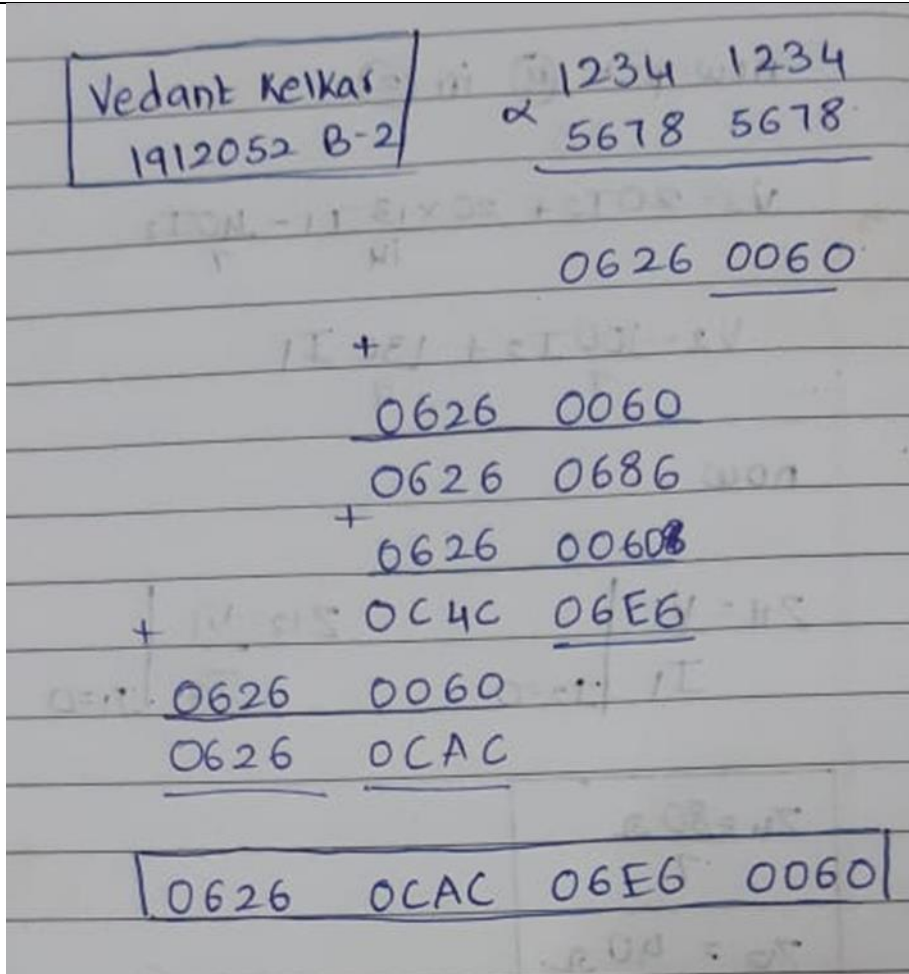 Vedant Kelkar
1912052 B-2
1234 1234
× 5678 5678
0626 0060
+
0626 0060
0626 0686
+
0626 0060
0C4C 06E6
+
0626 0060
0626 0CAC
0626 0CAC 06E6 0060